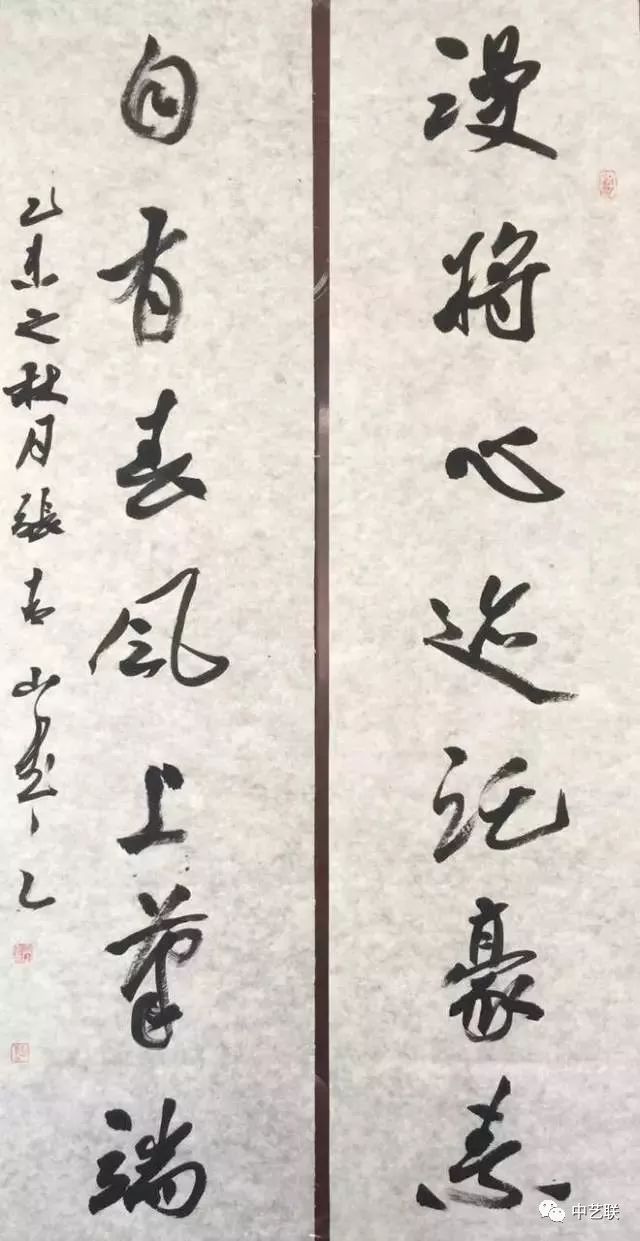 漫將心迹託豪素
自有春風上筆端
乙未之秋月張吉山書
中艺联